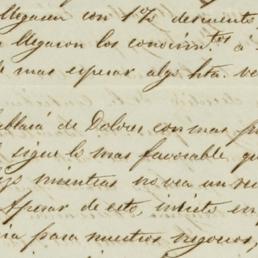 llegasen con 1% descuento
llegaron los condim.tos á
de mas esperar algo hta. ve
ablará de Dolores con mas
sigue lo mas favorable qu
mientras no vea un re
Apesar de esto, insisto en
para nuestros negocios,